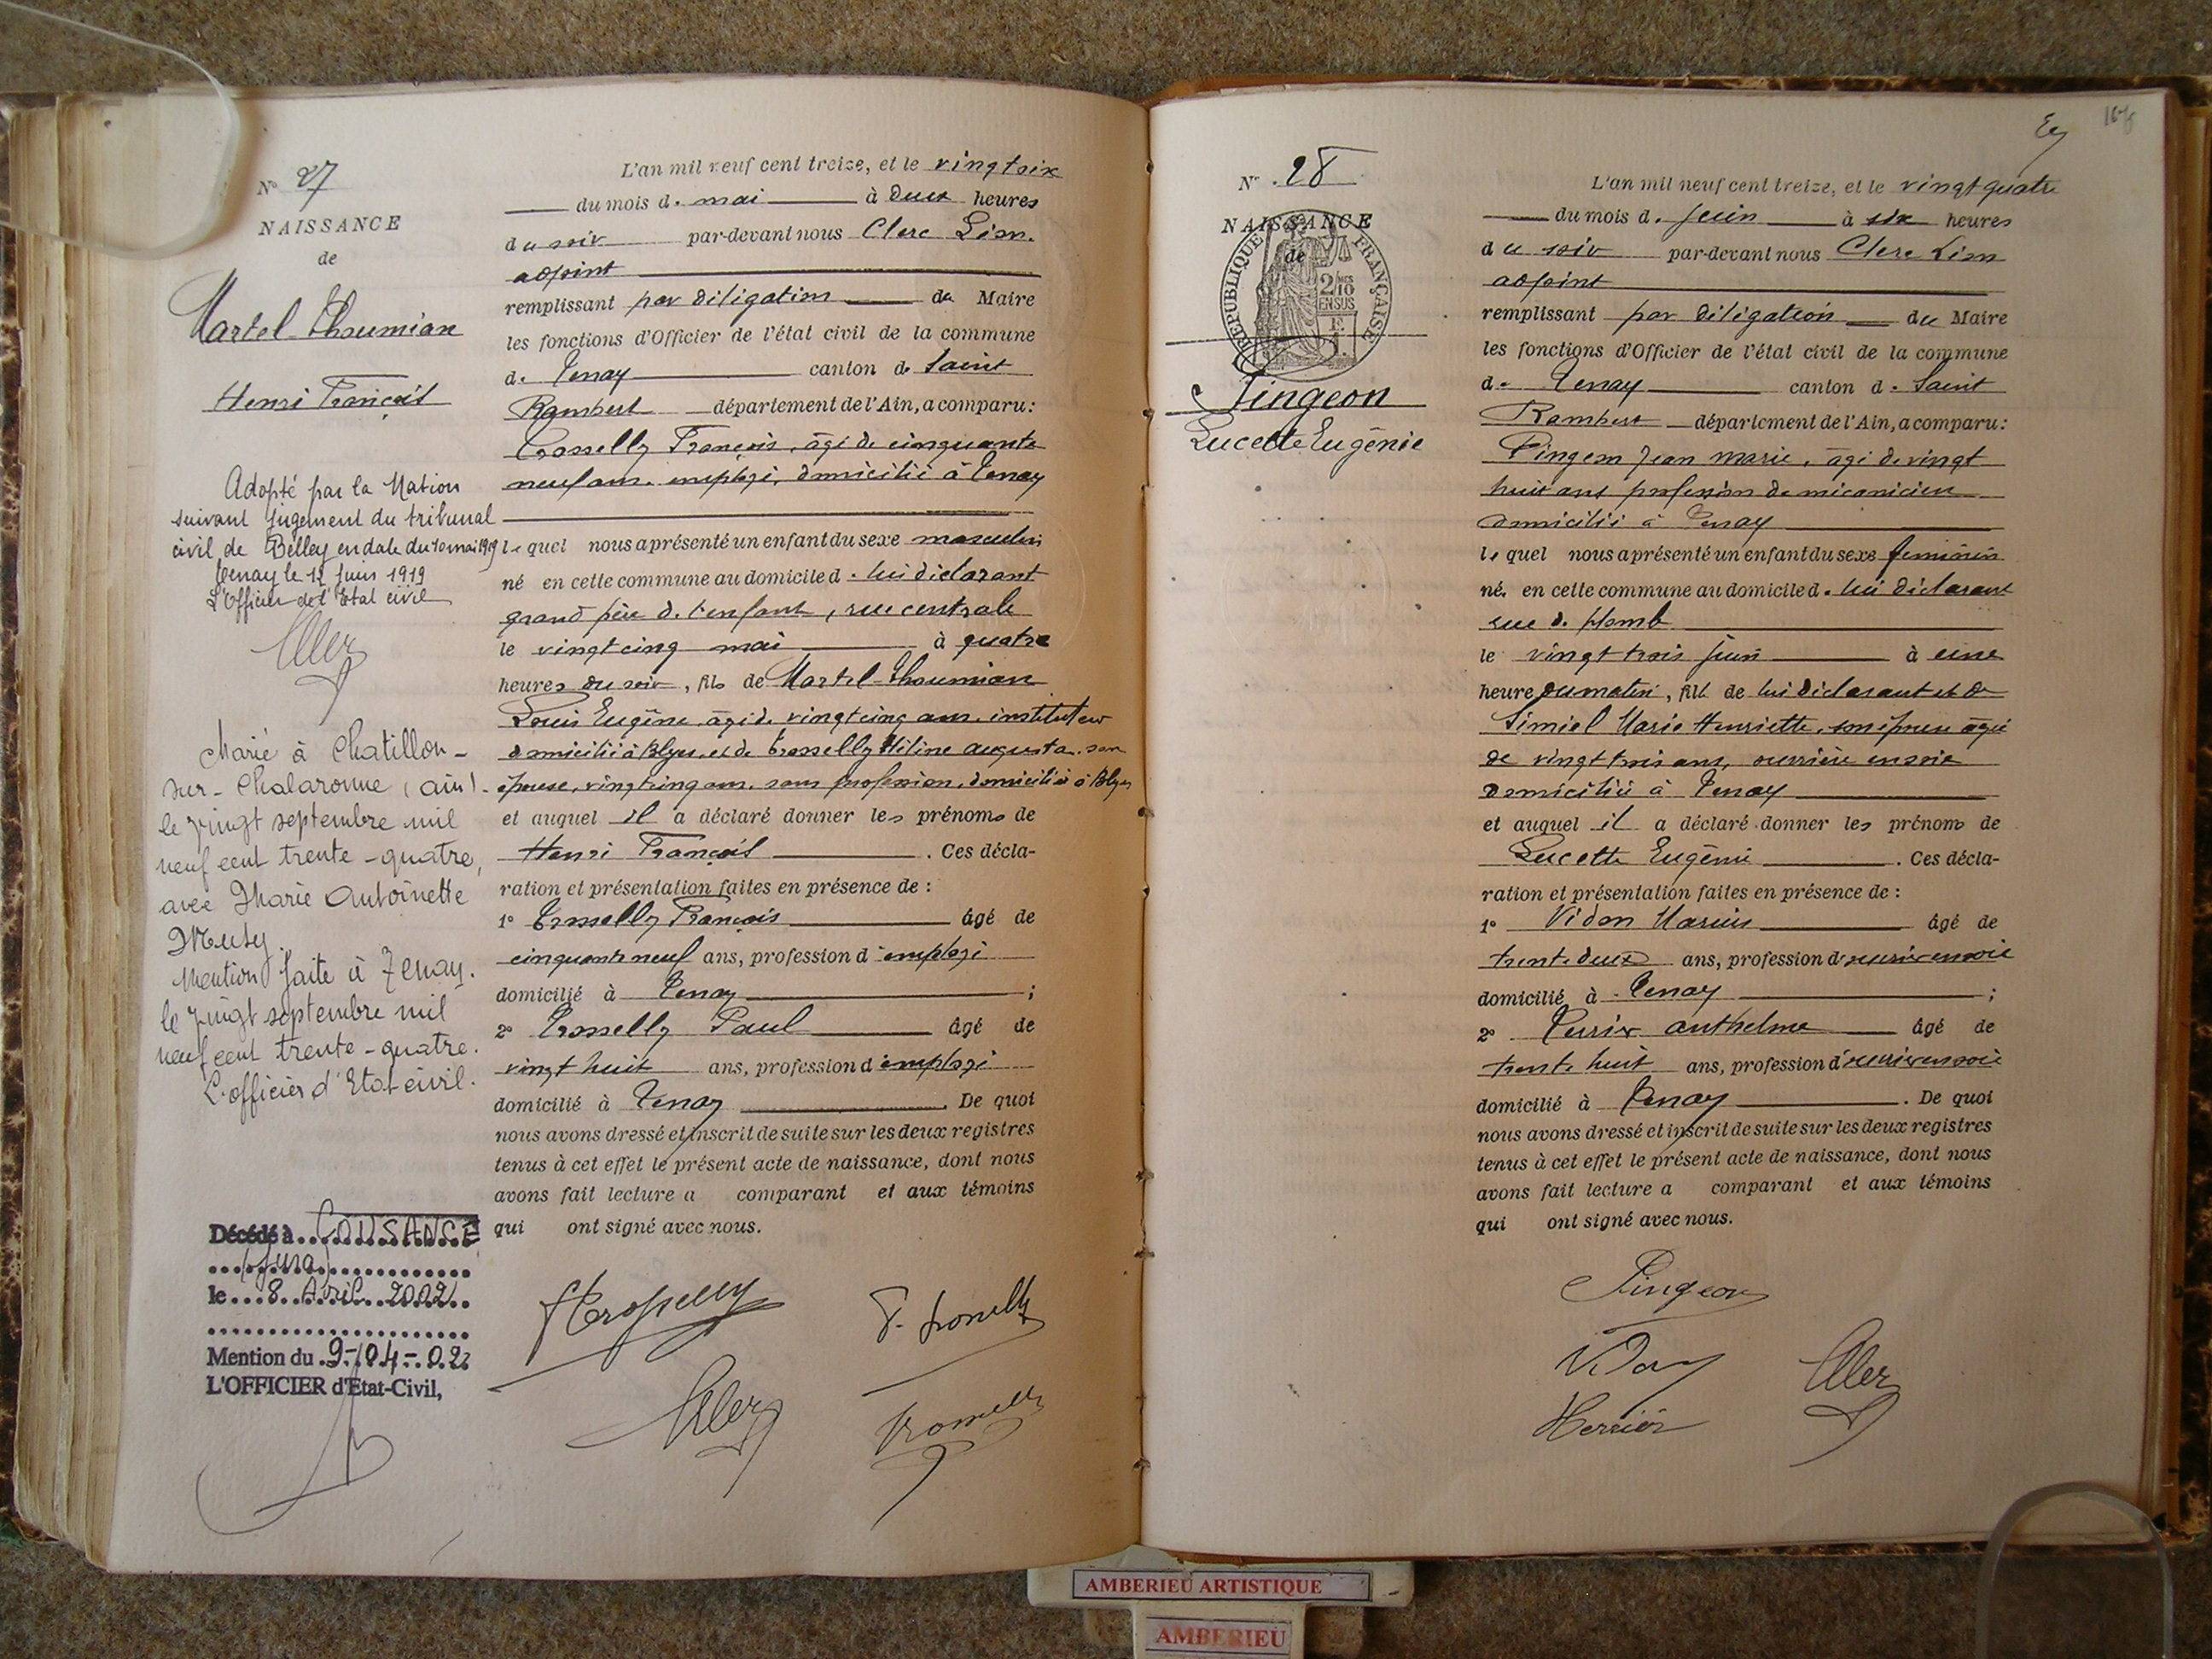 N° 27
NAISSANCE
de
Martel-Thoumian
Henri François
Adopté par la Nation
suivant jugement du tribunal
civil de Belley en date du 10 mai 1919
Tenay le 12 Juin 1919
L'Officier de l'Etat civil
Marié à Chatillon-
sur-Chalaronne (Ain)
le vingt septembre mil
neuf cent trente-quatre,
avec Marie Antoinette
Mention faite à Tenay.
le vingt septembre mil
neuf cent trente-quatre.
L'officier d'Etat civil.
Décédé à COUSANCE
(Jura)
le 8 Avril 2002
Mention du 9-04-02
L'OFFICIER d'Etat-Civil,
L'an mil neuf cent treize, et le vingt six
du mois d. mai à deux heures
du soir par-devant nous Clerc Léon.
adjoint
remplissant par déligation du Maire
les fonctions d'Officier de l'état civil de la commune
d. Tenay canton de Saint
Rambert département de l'Ain, a comparu:
Trosselly François, âgé de cinquante
neuf ans. employé, domicilié à Tenay
lequel nous a présenté un enfant du sexe masculin
né en cette commune au domicile d. lui déclarant
grand père de l'enfant, rue centrale
le vingt cinq mai à quatre
heures du soir, fils de Martel-Thoumian
Louis Eugène, âgé de vingt cinq ans. instituteur
domicilié à Blyes, et de Trosselly Héline Augusta, son
épouse, vingt cinq ans. sans profession, domiciliée à Blyes
et auquel il a déclaré donner les prénoms de
Henri François. Ces décla-
ration et présentation faites en présence de :
1° Trosselly François âgé de
cinquante neuf ans, profession d'employé
domicilié à Tenay ;
2° Trosselly Paul âgé de
vingt huit ans, profession d'employé
domicilié à Tenay. De quoi
nous avons dressé et inscrit de suite sur les deux registres
tenus à cet effet le présent acte de naissance, dont nous
avons fait lecture a comparant et aux témoins
qui ont signé avec nous.
N° 28
NAISSANCE
de
REPUBLIQUE FRANÇAISE
2/10 EN SUS
Pingeon
Lucette Eugénie
L'an mil neuf cent treize, et le vingt quatre
du mois d. juin à six heures
du soir par-devant nous Clerc Léon
adjoint
remplissant par déligation du Maire
les fonctions d'Officier de l'état civil de la commune
d. Tenay canton d. Saint
Rambert département de l'Ain, a comparu:
Pingeon Jean Marie, âgé de vingt
huit ans profession de mécanicien
domicilié à Tenay
lequel nous a présenté un enfant du sexe féminin
né. en cette commune au domicile d. lui déclarant
rue d. Plomb
le vingt trois juin à une
heure du matin, fille de lui déclarant et de
Simiel Marie Henriette, son épouse âgée
de vingt trois ans, ouvrière en soie
domiciliée à Tenay
et auquel il a déclaré donner les prénoms de
Lucette Eugénie. Ces décla-
ration et présentation faites en présence de :
1° Vidon Marius âgé de
trente deux ans, profession d'ouvrier en soie
domicilié à Tenay ;
2° Perrier Anthelme âgé de
trente huit ans, profession d'ouvrier en soie
domicilié à Tenay. De quoi
nous avons dressé et inscrit de suite sur les deux registres
tenus à cet effet le présent acte de naissance, dont nous
avons fait lecture a comparant et aux témoins
qui ont signé avec nous.
Pingeon
AMBERIEU ARTISTIQUE
AMBERIEU